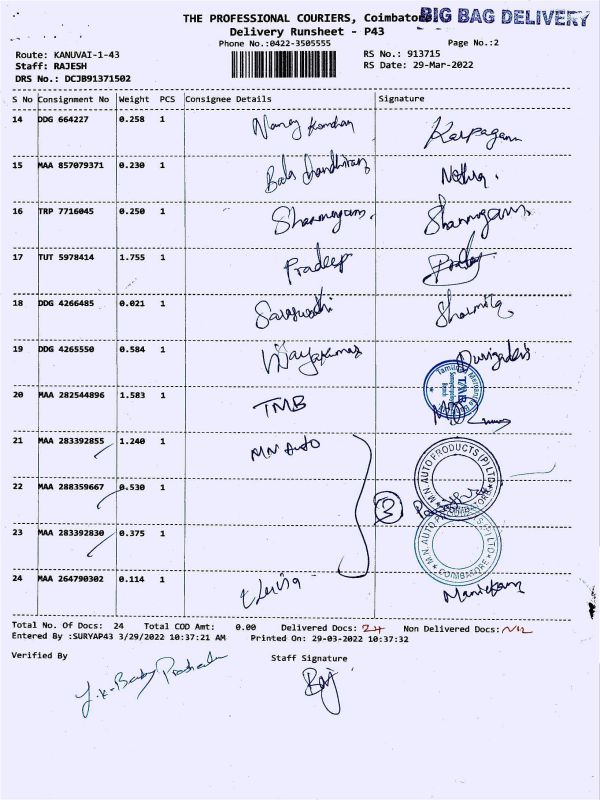 THE PROFESSIONAL COURIERS, Coimbatore
BIG BAG DELIVERY
Delivery Runsheet - P43
Phone No.:0422-3505555
Page No.:2
Route: KANUVAI-1-43
RS No.: 913715
Staff: RAJESH
RS Date: 29-Mar-2022
DRS No.: DCJB91371502
S No Consignment No Weight PCS Consignee Details Signature
14 DDG 664227 0.258 1
15 MAA 857079371 0.230 1
16 TRP 7716045 0.250 1 Shanmugam.
17 TUT 5978414 1.755 1 Pradeep
18 DDG 4266485 0.021 1 Saraswathi Sharmila
19 DDG 4265550 0.584 1 Vijayakumar
20 MAA 282544896 1.583 1 TMB
21 MAA 283392855 1.240 1 MN Auto
M.N. AUTO PRODUCTS (P) LTD
22 MAA 288359667 0.530 1 3
23 MAA 283392830 0.375 1
M.N. AUTO PRODUCTS (P) LTD COIMBATORE
24 MAA 264790302 0.114 1
Total No. Of Docs: 24 Total COD Amt: 0.00 Delivered Docs: 24 Non Delivered Docs: NIL
Entered By :SURYAP43 3/29/2022 10:37:21 AM Printed On: 29-03-2022 10:37:32
Verified By Staff Signature